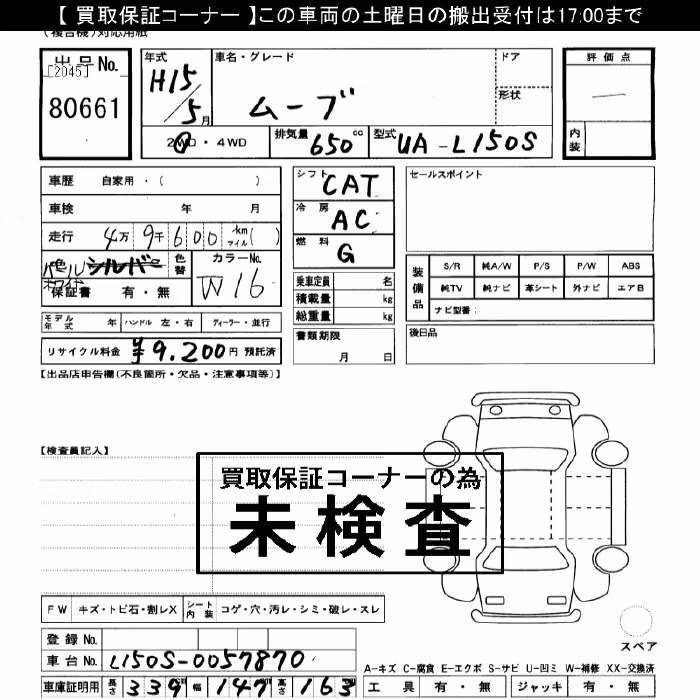 【 買取保証コーナー 】この車両の土曜日の搬出受付は17:00まで
(複合機)対応用紙
出品No.
[2045]
80661
年式
H15/5月
車名・グレード
ムーブ
ドア
形状
評価点
内装
2WD・4WD
排気量 650 cc
型式 UA-L150S
車歴 自家用・( )
車検 年 月
走行 4万9千600 km マイル( )
パールホワイト
シルバー
色替
カラーNo.
W16
保証書 有・無
モデル年式 年 ハンドル 左・右 ディーラー・並行
リサイクル料金 ¥9.200円 預託済
シフト CAT
冷房 AC
燃料 G
乗車定員 名
積載量 kg
総重量 kg
書類期限
月 日
セールスポイント
装備品
S/R 純A/W P/S P/W ABS
純TV 純ナビ 革シート 外ナビ エアB
ナビ型番:
後日品
【出品店申告欄(不良箇所・欠品・注意事項等)】
【検査員記入】
買取保証コーナーの為
未検査
FW キズ・トビ石・割レX シート内装 コゲ・穴・汚レ・シミ・破レ・スレ
登録No.
車台No. L150S-0057870
車庫証明用 長さ 339 幅 147 高さ 163
スペア
A-キズ C-腐食 E-エクボ S-サビ U-凹ミ W-補修 XX-交換済
工具 有・無 ジャッキ 有・無